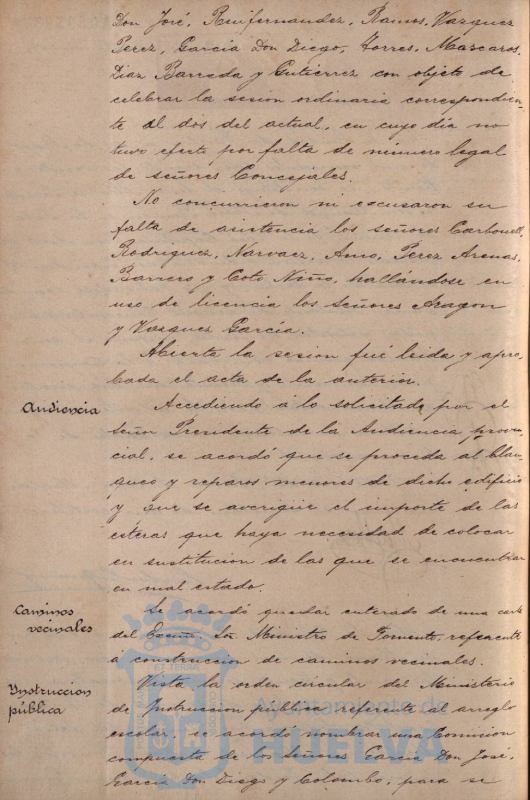 Don José, Ruifernandez, Ramos, Vazquez
Perez, Garcia Don Diego, Torres, Mascaros,
Diaz Barreda y Gutierrez con objeto de
celebrar la sesion ordinaria correspondien-
te al dos del actual, en cuyo dia no
tuvo efecto por falta de número legal
de señores Concejales.
No concurrieron ni escusaron su
falta de asistencia los señores Carbonell,
Rodriguez, Narvaez, Amo, Perez Arenas,
Barrero y Coto Niño, hallándose en
uso de licencia los señores Aragon
y Vazquez Garcia.
Abierta la sesion fué leida y apro-
bada el acta de la anterior.
Audiencia
Accediendo á lo solicitado por el
señor Presidente de la Audiencia provin-
cial, se acordó que se proceda al blan-
queo y reparos menores de dicho edificio
y que se averigüe el importe de las
esteras que haya necesidad de colocar
en sustitucion de las que se encuentran
en mal estado.
Caminos
vecinales
Se acordó quedar enterado de una carta
del Excmo. Sor. Ministro de Fomento, referente
á construccion de caminos vecinales.
Instruccion
pública
Vista la orden circular del Ministerio
de Instruccion pública referente al arreglo
escolar, se acordó nombrar una Comision
compuesta de los señores Garcia Don José,
Garcia Don Diego y Colombo, para se
Ayuntamiento de
HUELVA